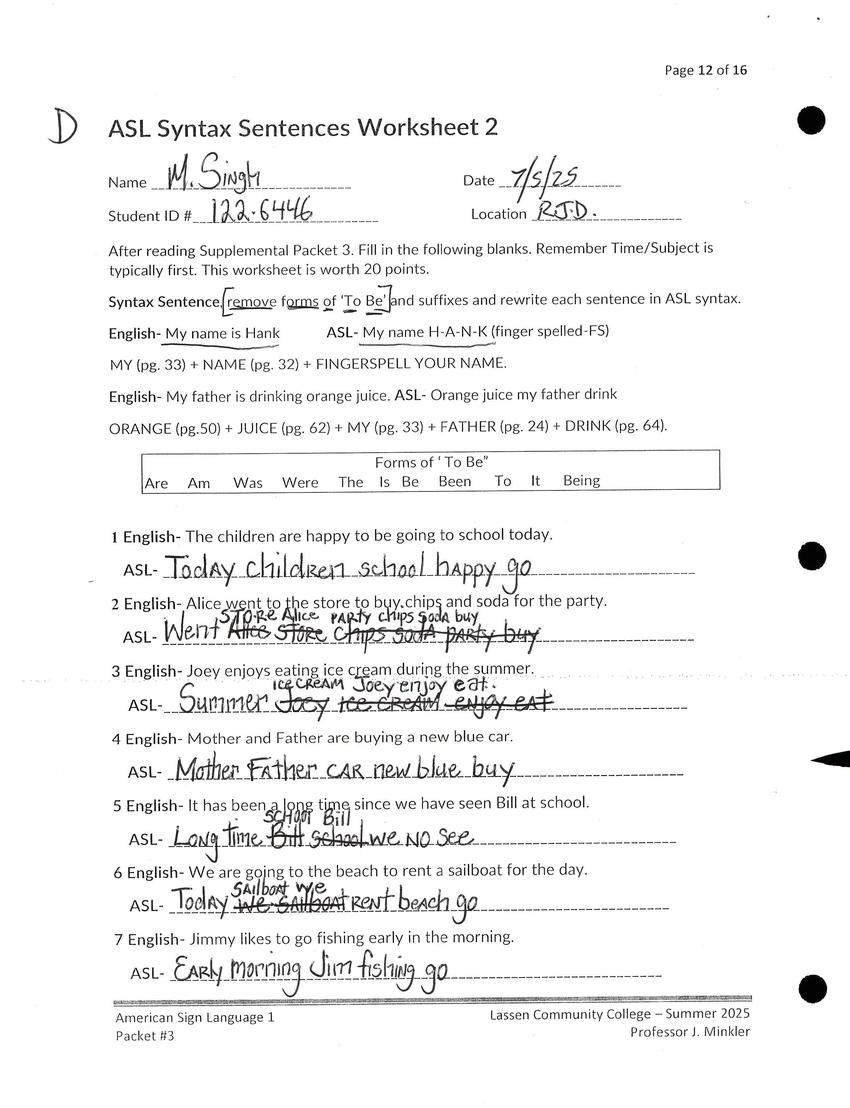 Page 12 of 16
D
ASL Syntax Sentences Worksheet 2
Name M. Singh Date 7/5/25
Student ID # 122.6446 Location RJ.D.
After reading Supplemental Packet 3. Fill in the following blanks. Remember Time/Subject is
typically first. This worksheet is worth 20 points.
Syntax Sentence, [remove forms of 'To Be'] and suffixes and rewrite each sentence in ASL syntax.
English- My name is Hank ASL- My name H-A-N-K (finger spelled-FS)
MY (pg. 33) + NAME (pg. 32) + FINGERSPELL YOUR NAME.
English- My father is drinking orange juice. ASL- Orange juice my father drink
ORANGE (pg.50) + JUICE (pg. 62) + MY (pg. 33) + FATHER (pg. 24) + DRINK (pg. 64).
Forms of ' To Be"
Are Am Was Were The Is Be Been To It Being
1 English- The children are happy to be going to school today.
ASL- Today children school happy go
2 English- Alice went to the store to buy chips and soda for the party.
STORE Alice PARTY chips Soda buy
ASL- Went Alice STORE Chips SODA PARTY buy
3 English- Joey enjoys eating ice cream during the summer.
ICE CREAM Joey enjoy eat.
ASL- Summer Joey ICE CREAM enjoy EAT
4 English- Mother and Father are buying a new blue car.
ASL- Mother FATher CAR new blue buy
5 English- It has been a long time since we have seen Bill at school.
SCHOOl Bill
ASL- Long time Bill school we NO See
6 English- We are going to the beach to rent a sailboat for the day.
SAilboat we
ASL- TodAY we SAilboat RENT beach go
7 English- Jimmy likes to go fishing early in the morning.
ASL- EARly morning Jim fishing go
American Sign Language 1 Lassen Community College – Summer 2025
Packet #3 Professor J. Minkler